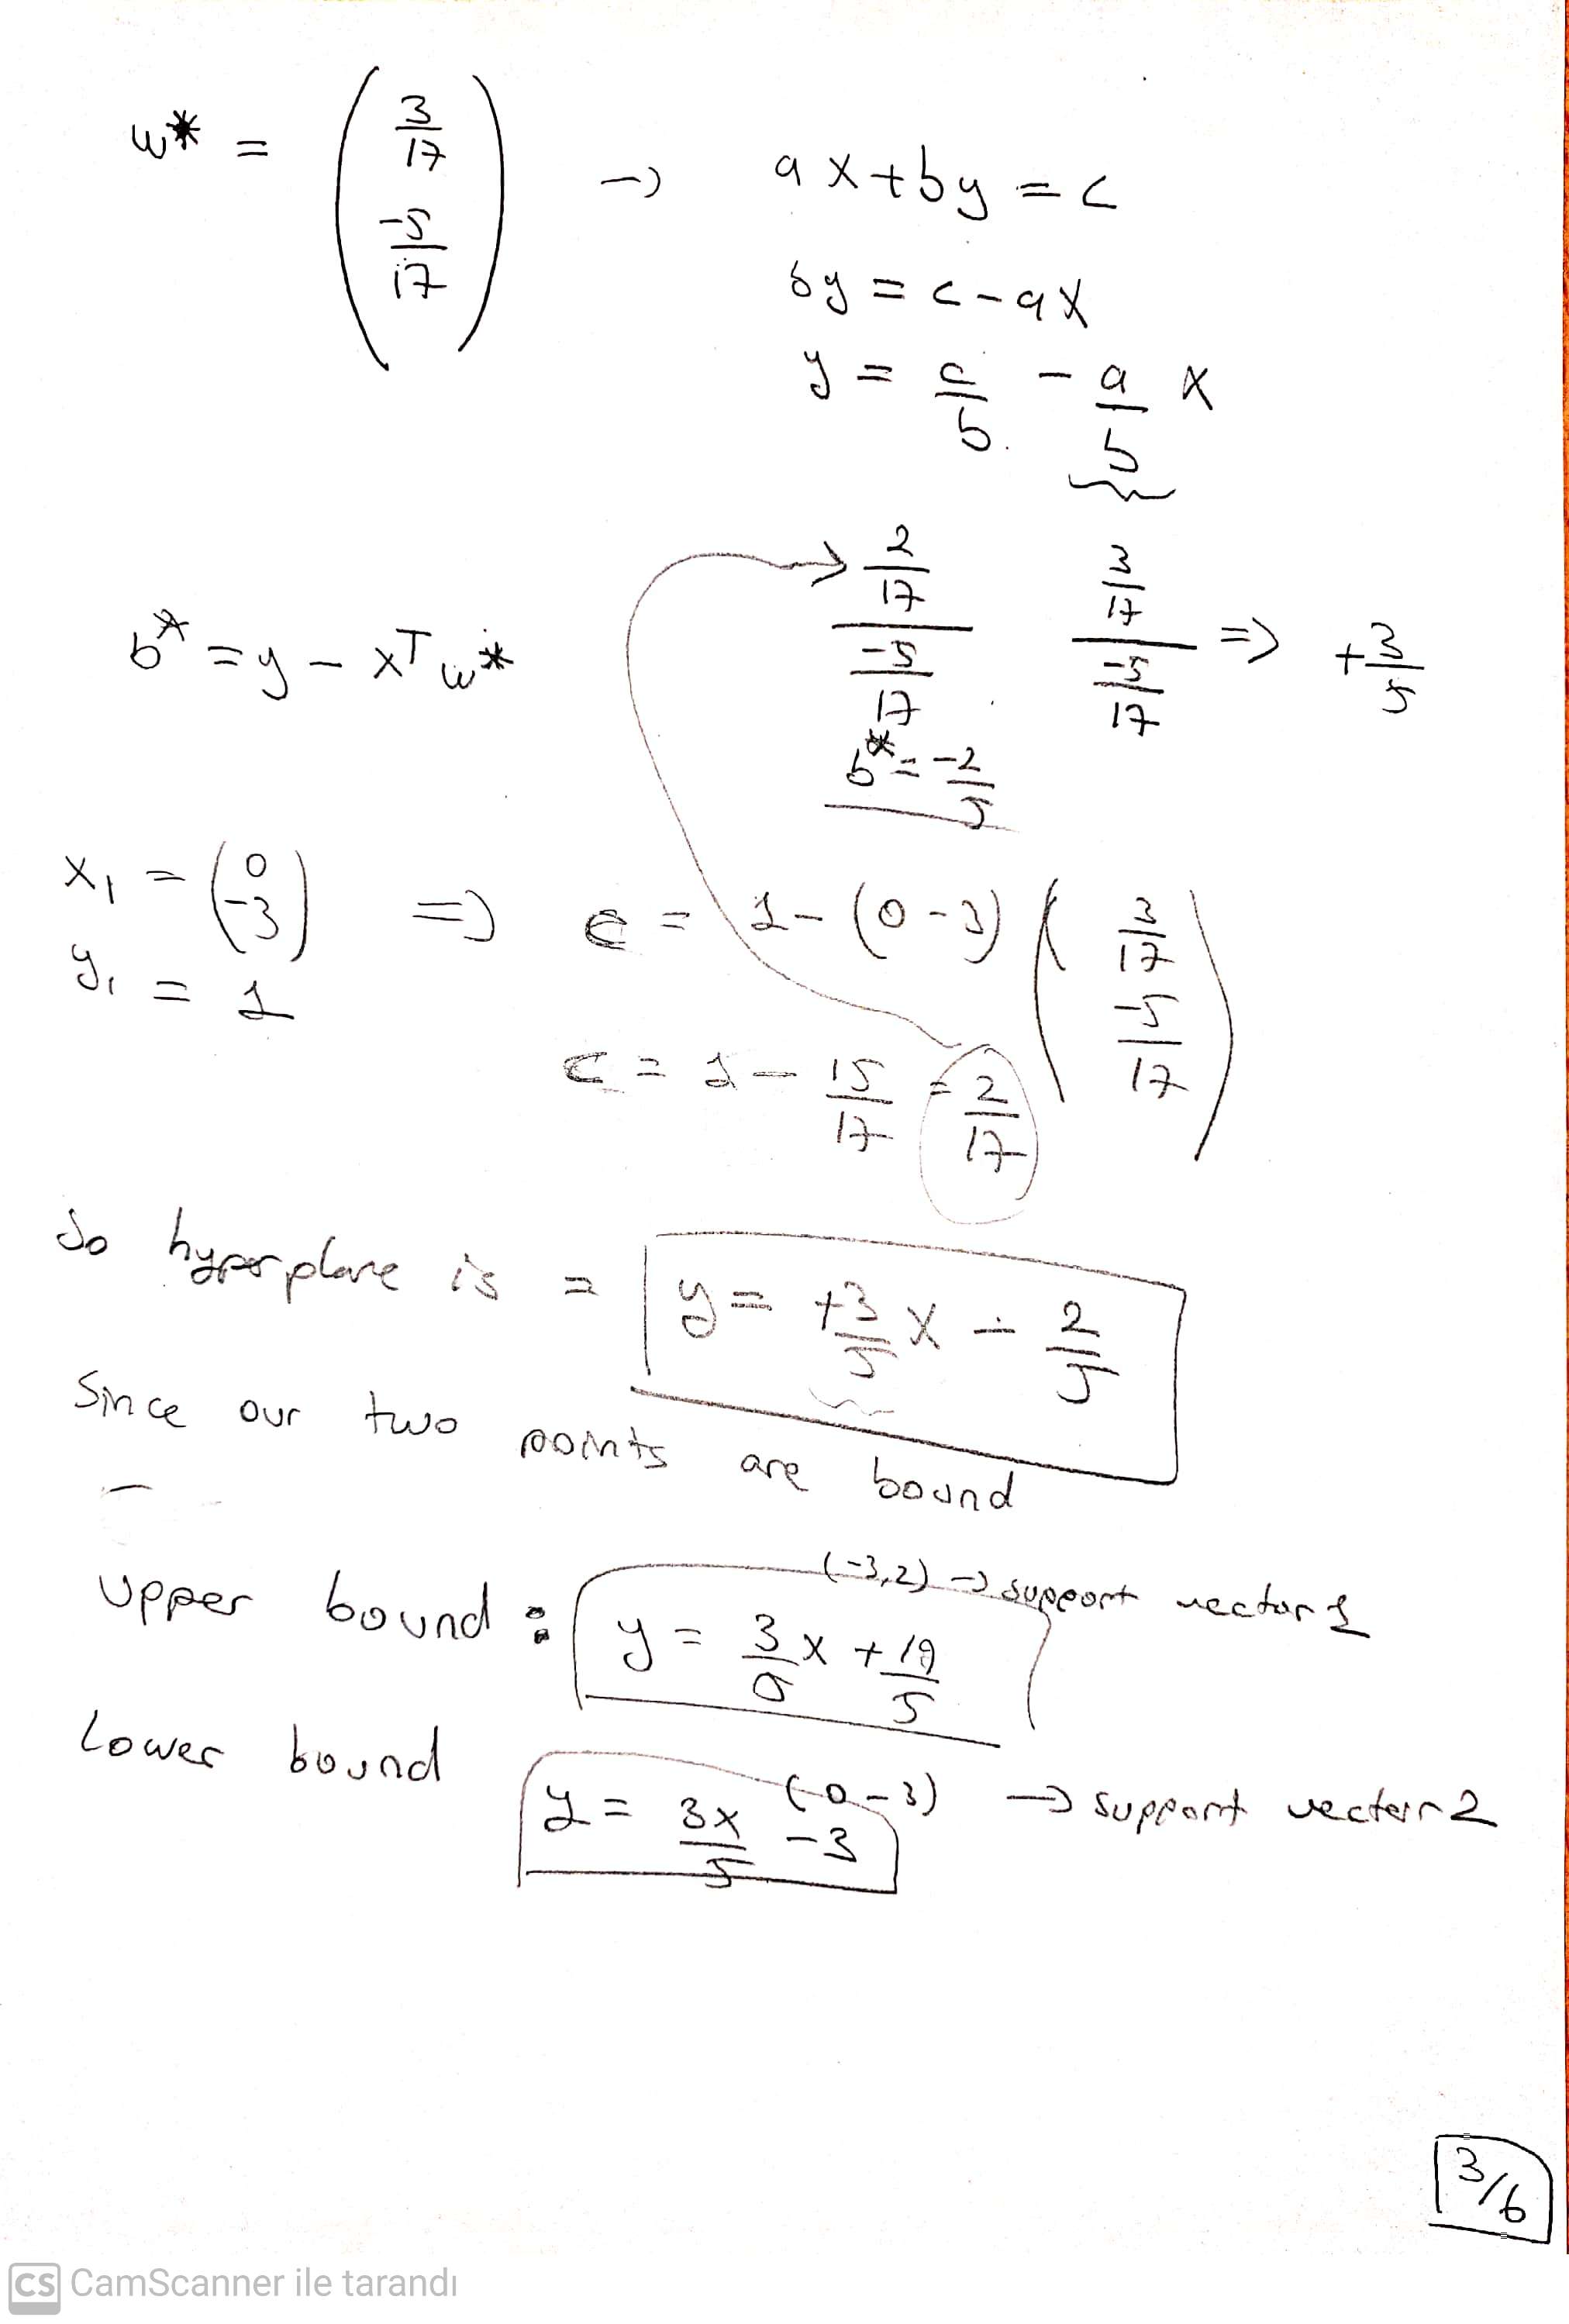 w* = ( 3/17 -5/17 ) -> ax+by = c
by = c-ax
y = c/b - a/b x
b* = y - xT w*
2/17 / -5/17
3/17 / -5/17 => +3/5
b* = -2/5
x1 = ( 0 -3 ) => c = 1 - (0 -3) ( 3/17 -5/17 )
y1 = 1
c = 1 - 15/17 = 2/17
So hyperplane is = y = +3/5 x - 2/5
Since our two points are bound
(-3,2) -> support vector 1
upper bound : y = 3/5 x + 19/5
(0 -3) -> support vector 2
Lower bound y = 3x/5 -3
3/6
CS CamScanner ile tarandı